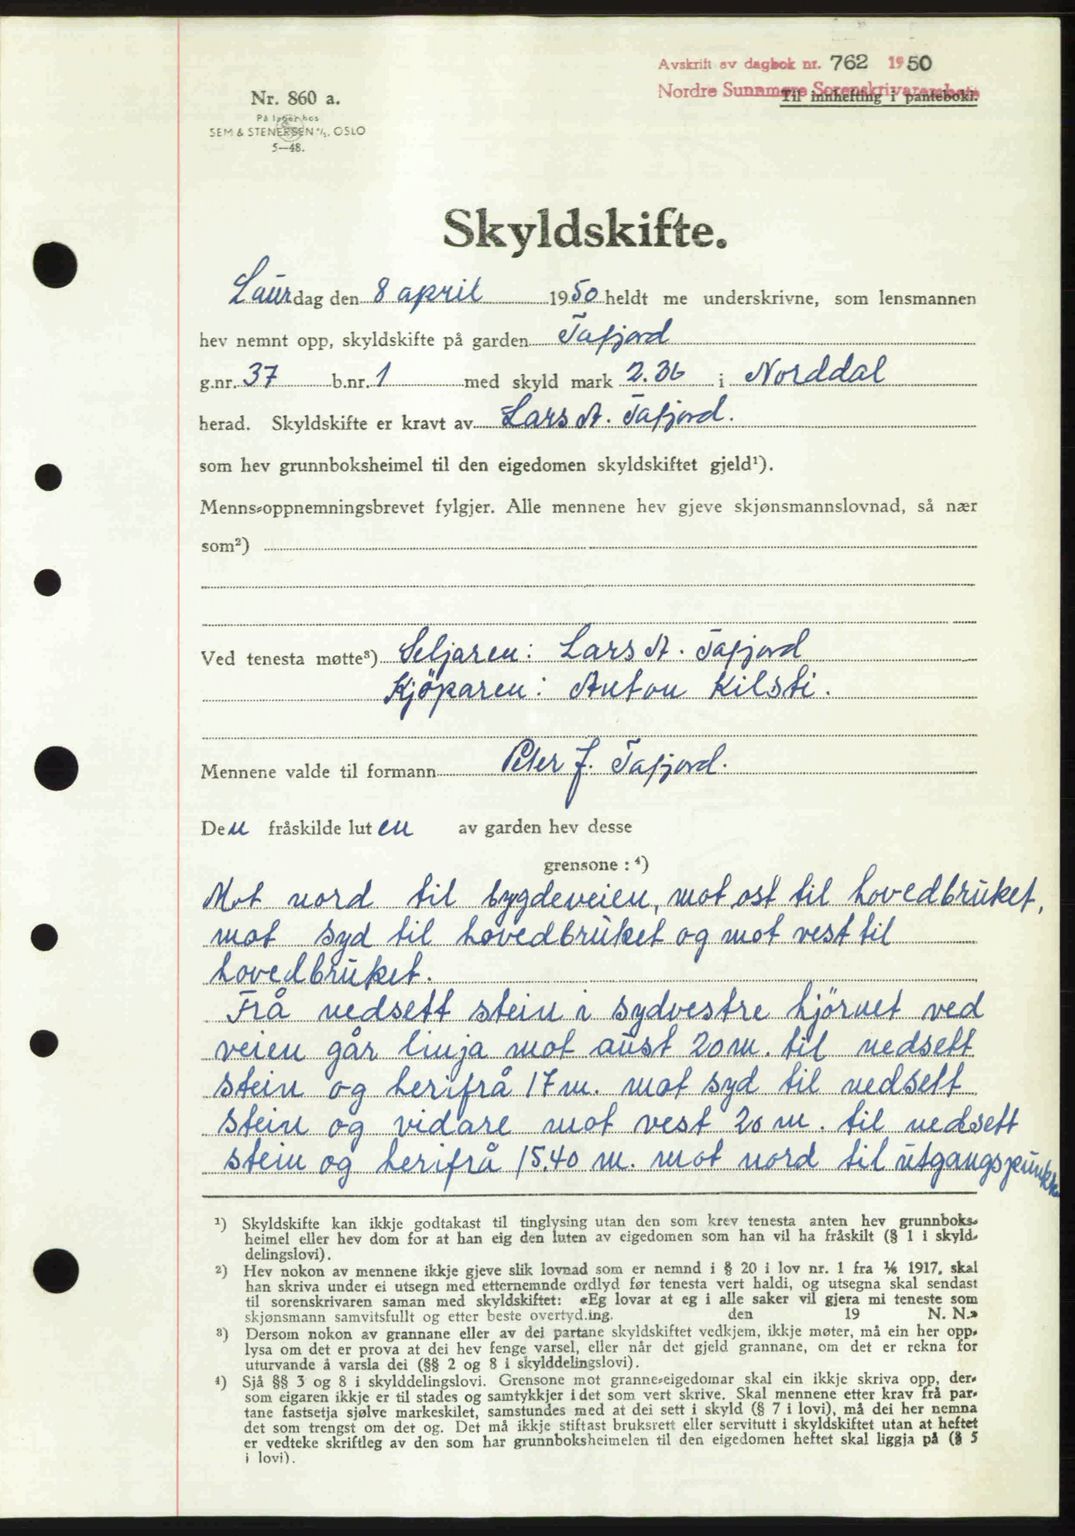 Avskrift av dagbok nr. 762 1950
Nordre Sunnmøre Sorenskrivarembete
Til innhefting i pantebokt.
Nr. 860 a.
På lager hos
SEM & STENERSEN A/S, OSLO
5—48.
Skyldskifte.
Laurdag den 8 april 1950 heldt me underskrivne, som lensmannen
hev nemnt opp, skyldskifte på garden Tafjord
g.nr. 37 b.nr. 1 med skyld mark 2.36 i Norddal
herad. Skyldskifte er kravt av Lars A. Tafjord.
som hev grunnboksheimel til den eigedomen skyldskiftet gjeld¹).
Menns-oppnemningsbrevet fylgjer. Alle mennene hev gjeve skjønsmannslovnad, så nær
som²)
Ved tenesta møtte³) Seljaren: Lars A. Tafjord
Kjöparen: Anton Kilsti.
Mennene valde til formann Peter J. Tafjord.
Den fråskilde luten av garden hev desse
grensone : ⁴)
Mot nord til bygdeveien, mot ost til hovedbruket,
mot syd til hovedbruket og mot vest til
hovedbruket.
Frå nedsett stein i sydvestre hjörnet ved
veien går linja mot aust 20 m. til nedsett
stein og herifrå 17 m. mot syd til nedsett
stein og vidare mot vest 20 m. til nedsett
stein og herifrå 15.40 m. mot nord til utgangspunkt
¹) Skyldskifte kan ikkje godtakast til tinglysing utan den som krev tenesta anten hev grunnboks-
heimel eller hev dom for at han eig den luten av eigedomen som han vil ha fråskilt (§ 1 i skyld-
delingslovi).
²) Hev nokon av mennene ikkje gjeve slik lovnad som er nemnd i § 20 i lov nr. 1 fra 1/6 1917, skal
han skriva under ei utsegn med etternemnde ordlyd før tenesta vert haldi, og utsegna skal sendast
til sorenskrivaren saman med skyldskiftet: «Eg lovar at eg i alle saker vil gjera mi teneste som
skjønsmann samvitsfullt og etter beste overtyding. den 19 N. N.»
³) Dersom nokon av grannane eller av dei partane skyldskiftet vedkjem, ikkje møter, må ein her opp-
lysa om det er prova at dei hev fenge varsel, eller når det gjeld grannane, om det er rekna for
uturvande å varsla dei (§§ 2 og 8 i skylddelingslovi).
⁴) Sjå §§ 3 og 8 i skylddelingslovi. Grensone mot granne-eigedomar skal ein ikkje skriva opp, der-
som eigaren ikkje er til stades og samtykkjer i det som vert skrive. Skal mennene etter krav frå par-
tane fastsetja sjølve markeskilet, samstundes med at dei sett i skyld (§ 7 i lovi), må dei her nemna
det som trengst om det og. Det må ikkje stiftast bruksrett eller servitutt i skyldskiftet utan at heftet
er vedteke skriftleg av den som har grunnboksheimelen til den eigedomen heftet skal liggja på (§ 5
i lovi).